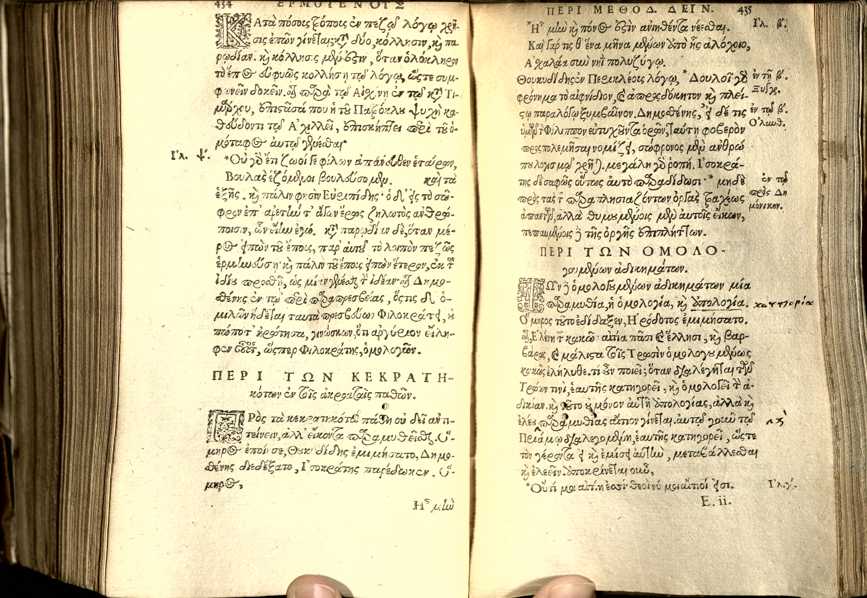 434 ΕΡΜΟΓΕΝΟΥΣ
ΚΑΤΑ πόσους τρόπους ἐν πεζῷ λόγῳ χρῆ-
σις ἐπῶν γίνεται; κατὰ δύο, κόλλησιν, καὶ πα-
ρῳδίαν. καὶ κόλλησις μέν ἐστιν, ὅταν ὁλόκληρον
τὸ ἔπος εὐφυῶς κολλήσῃ τῷ λόγῳ, ὥστε συμ-
φωνεῖν δοκεῖν. ὡς παρὰ τῷ Αἰσχίνῃ ἐν τῷ κατὰ Τι-
μάρχου, ἐπιστᾶσά που ἡ τοῦ Πατρόκλου ψυχὴ κα-
θεύδοντι τῷ Ἀχιλλεῖ, ἐπισκήπτει περὶ τοῦ ὁ-
μοτάφος αὐτῷ γενέσθαι
Ἰλ. ψ. Οὐ γὰρ ἔτι ζωοί γε φίλων ἀπάνευθεν ἑταίρων,
Βουλὰς ἑζόμενοι βουλεύσομεν. καὶ τὰ
ἑξῆς. καὶ πάλιν φησὶν Εὐριπίδης· ὁ δ' εἰς τὸ σῶ-
φρον ἐπ' ἀρετήν τ' ἄγων ἔρως ζηλωτὸς ἀνθρώ-
ποισιν, ὧν εἴην ἐγώ. κατὰ παρῳδίαν δὲ, ὅταν μέ-
ρος εἰπὼν τοῦ ἔπους, παρ' αὑτοῦ τὸ λοιπὸν πεζῶς
ἑρμηνεύσῃ, καὶ πάλιν τοῦ ἔπους εἰπὼν ἕτερον, ἐκ τοῦ
ἰδίου προσθῇ, ὡς μίαν γενέσθαι τὴν ἰδέαν. ὡς Δημο-
σθένης ἐν τῷ περὶ παραπρεσβείας, ὅστις δ' ὁ-
μιλῶν ἥδεται ταῦτα πρεσβεύων Φιλοκράτει, οὐ
πώποτ' ἠρώτησα, γινώσκων, ὅτι ἀργύριον εἴλη-
φεν οὗτος, ὥσπερ Φιλοκράτης, ὁμολογῶν.
ΠΕΡΙ ΤΩΝ ΚΕΚΡΑΤΗ-
κότων ἐν ταῖς ἀκροαταῖς παθῶν.
ΠΡΟΣ τὰ κεκρατηκότα πάθη οὐ δεῖ ἀντι-
τείνειν, ἀλλ' εἴκοντα παραμυθεῖσθαι. Ὅ-
μηρος ἐποίησε, Θουκυδίδης ἐμιμήσατο, Δημο-
σθένης δεδέξατο, Ἰσοκράτης παρέδωκεν. Ὅ-
μηρος,
Ἦ μὴν
ΠΕΡΙ ΜΕΘΟΔ. ΔΕΙΝ. 435
Ἦ μὴν καὶ πόνος ἐστὶν ἀνιηθέντα νέεσθαι. Ἰλ. β.
Καὶ γάρ τίς θ' ἕνα μῆνα μένων ἀπὸ ἧς ἀλόχοιο,
Ἀσχαλάᾳ σὺν νηῒ πολυζύγῳ.
Θουκυδίδης ἐν Περικλέους λόγῳ, Δουλοῖ γὰρ ἐν τῇ β.
φρόνημα τὸ αἰφνίδιον, καὶ ἀπροσδόκητον καὶ πλεί- ξυγγ.
στῳ παραλόγῳ ξυμβαῖνον. Δημοσθένης, εἰ δέ τις ἐν τῷ β.
ὑμῶν τὸν Φίλιππον εὐτυχοῦντα ὁρῶν, ταύτῃ φοβερὸν Ὀλυνθ.
προσπολεμῆσαι νομίζει, σώφρονος μὲν ἀνθρώ-
που λογισμῷ χρῆται, μεγάλη γὰρ ῥοπή. Ἰσοκρά-
της δὲ σαφῶς οὕτως αὐτὸ παραδίδωσι· μηδὲ ἐν τῷ
πρὸς τὰς τῶν πλησιαζόντων ὀργὰς τραχέως πρὸς Δη-
ἀπαντᾶν, ἀλλὰ θυμουμένοις μὲν αὐτοῖς εἴκων, μόνικον.
πεπαυμένοις δὲ τῆς ὀργῆς ἐπιπλήττων.
ΠΕΡΙ ΤΩΝ ΟΜΟΛΟ-
γουμένων ἀδικημάτων.
ΤΩΝ ὁμολογουμένων ἀδικημάτων μία
παραμυθία, ἡ ὁμολογία, καὶ ἀπολογία.
Ὅμηρος τοῦτο ἐδίδαξεν, Ἡρόδοτος ἐμιμήσατο.
ἡ Ἑλένη κακῶν αἰτία πᾶσι καὶ Ἕλλησι, καὶ βαρ-
βάροις, καὶ μάλιστα τοῖς Τρωσὶν ὁμολογουμένως
κακῶς ἐλήλυθε. τί οὖν ποιεῖ; ὅταν διαλέγηται τῶν
Τρώων τινί, ἑαυτῆς κατηγορεῖ, καὶ ὁμολογεῖ τὴν ἀ-
δικίαν. καὶ τοῦτο οὐ μόνον αὐτῇ ἀπολογίας, ἀλλὰ καὶ
ἐλέου παραμυθίας αἴτιον γίνεται. αὐτίκα γοῦν τῷ
Πριάμῳ διαλεγομένη, ἑαυτῆς κατηγορεῖ, ὥστε
τὸν γέροντα εἰ καὶ ἐμίσει αὐτὴν, μεταβαλέσθαι
καὶ ἐλεεῖν. ἀποκρίνεται οὖν,
Οὔτι μοι αἰτίη ἐσσί· θεοί νύ μοι αἴτιοί εἰσι. Ἰλ. γ.
E. ii.